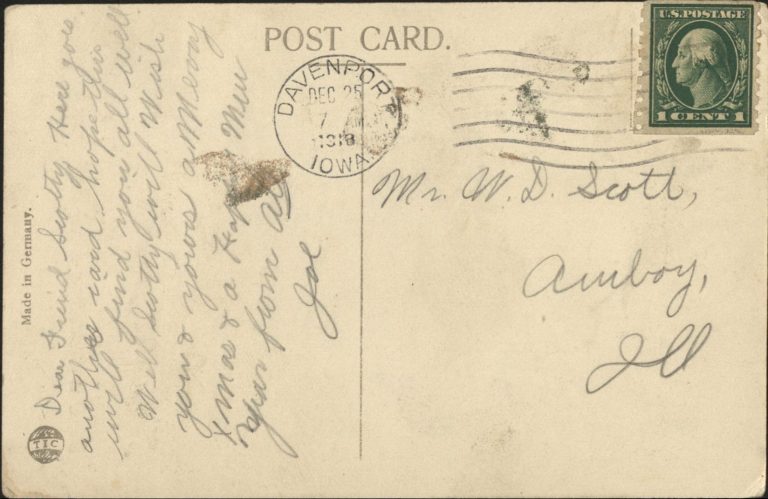 POST CARD.
U.S. POSTAGE
1 CENT 1
DAVENPORT
DEC 25
7 AM
IOWA
Dear Friend Scotty Here goes
another card hope this
will find you all well
Well Scotty will Wish
you & yours a Merry
Xmas & a Happy New
Year from All
Joe
Mr. W. D. Scott,
Amboy,
Ill
Made in Germany.
TIC